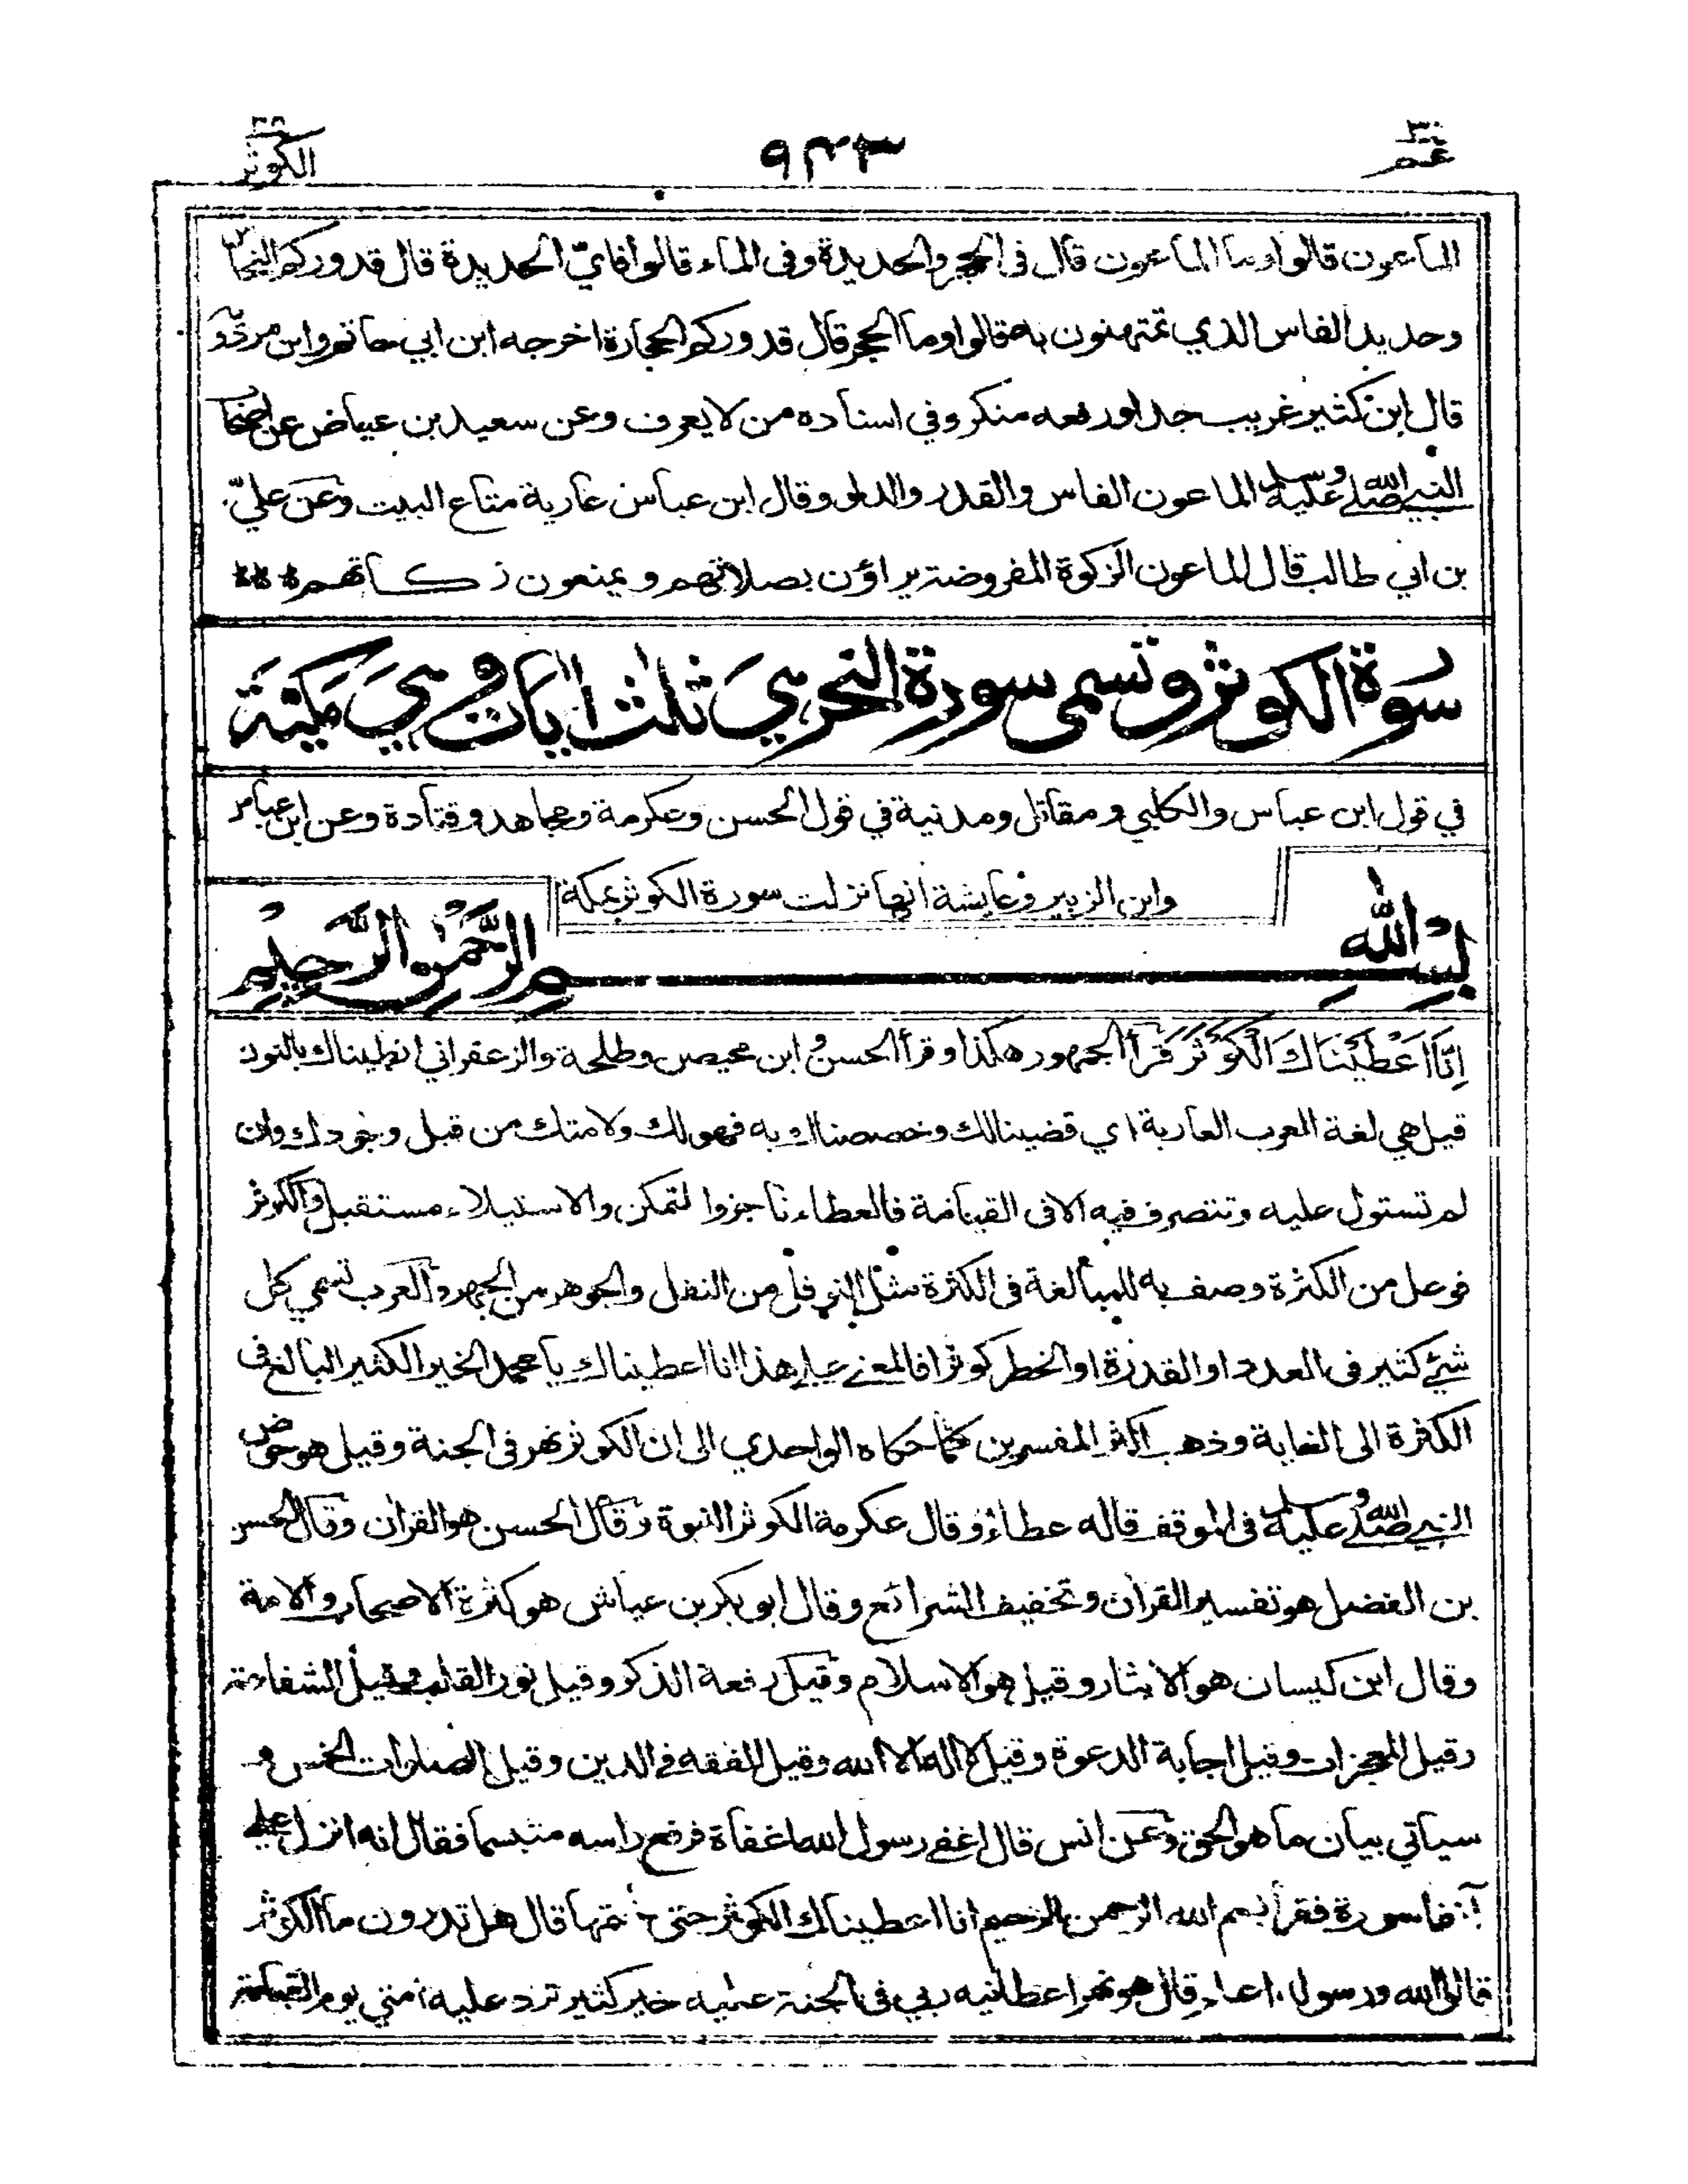 عم ٣٠
٩٣٣
الكوثر
الماعون قالوا وما الماعون قال في الحجر والحديدة وفي الماء قالوا فاي الحديدة قال قدوركم النحاس
وحديد الفاس الذي تمتهنون به قالوا وما الحجر قال قدوركم الحجارة اخرجه ابن ابي حاتم وابن مردويه
قال ابن كثير غريب جدا ورفعه منكر وفي اسناده من لا يعرف وعن سعيد بن عياض عن اصحاب
النبي صلى الله عليه وسلم الماعون الفاس والقدر والدلو وقال ابن عباس عارية متاع البيت وعن علي
بن ابي طالب قال الماعون الزكوة المفروضة يراؤن بصلاتهم ويمنعون زكاتهم ***
سورة الكوثر وتسمى سورة النحر هي ثلث ايات وهي مكية
في قول ابن عباس والكلبي ومقاتل ومدنية في قول الحسن وعكرمة ومجاهد وقتادة وعن ابن عباس
وابن الزبير وعايشة انها نزلت سورة الكوثر بمكة
بِسْمِ اللهِ الرَّحْمٰنِ الرَّحِيْمِ
اِنَّا اَعْطَيْنَاكَ الْكَوْثَرَ قرأ الجمهور هكذا وقرأ الحسن وابن محيصن وطلحة والزعفراني انطيناك بالنون
قيل هي لغة العرب العاربة اي قضينا لك وخصصناك به فهو لك ولامتك من قبل وجودك وان
لم تستول عليه وتتصرف فيه الا في القيامة فالعطاء ناجز والتمكن والاستيلاء مستقبل والكوثر
فوعل من الكثرة وصف به للمبالغة في الكثرة مثل النوفل من النفل والجوهر من الجهر والعرب تسمي كل
شيء كثير في العدد او القدرة او الخطر كوثرا فالمعنى على هذا انا اعطيناك يا محمد الخير الكثير البالغ في
الكثرة الى الغاية وذهب اكثر المفسرين كما حكاه الواحدي الى ان الكوثر نهر في الجنة وقيل هو حوض
النبي صلى الله عليه وسلم في الموقف قاله عطاء وقال عكرمة الكوثر النبوة وقال الحسن هو القرآن وقال الحسن
بن الفضل هو تفسير القرآن وتخفيف الشرائع وقال ابو بكر بن عياش هو كثرة الاصحاب والامة
وقال ابن كيسان هو الايثار وقيل هو الاسلام وقيل رفعة الذكر وقيل نور القلب وقيل الشفاعة
وقيل المعجزات وقيل اجابة الدعوة وقيل لا اله الا الله وقيل الفقه في الدين وقيل الصلوات الخمس و
سياتي بيان ما هو الحق وعن انس قال اغفى رسول الله اغفاة فرفع راسه متبسما فقال انه انزل علي
آنفا سورة فقرأ بسم الله الرحمن الرحيم انا اعطيناك الكوثر حتى ختمها قال هل تدرون ما الكوثر
قالوا الله ورسوله اعلم قال هو نهر اعطانيه ربي في الجنة عليه خير كثير ترد عليه امتي يوم القيامة